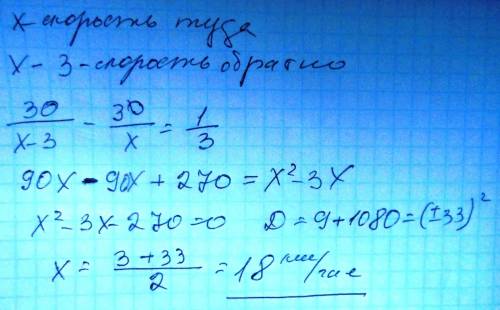 x - скорость туда
x - 3 - скорость обратно
30/(x-3) - 30/x = 1/3
90x - 90x + 270 = x² - 3x
x² - 3x - 270 = 0 D = 9 + 1080 = (±33)²
x = (3 + 33)/2 = 18 км/час